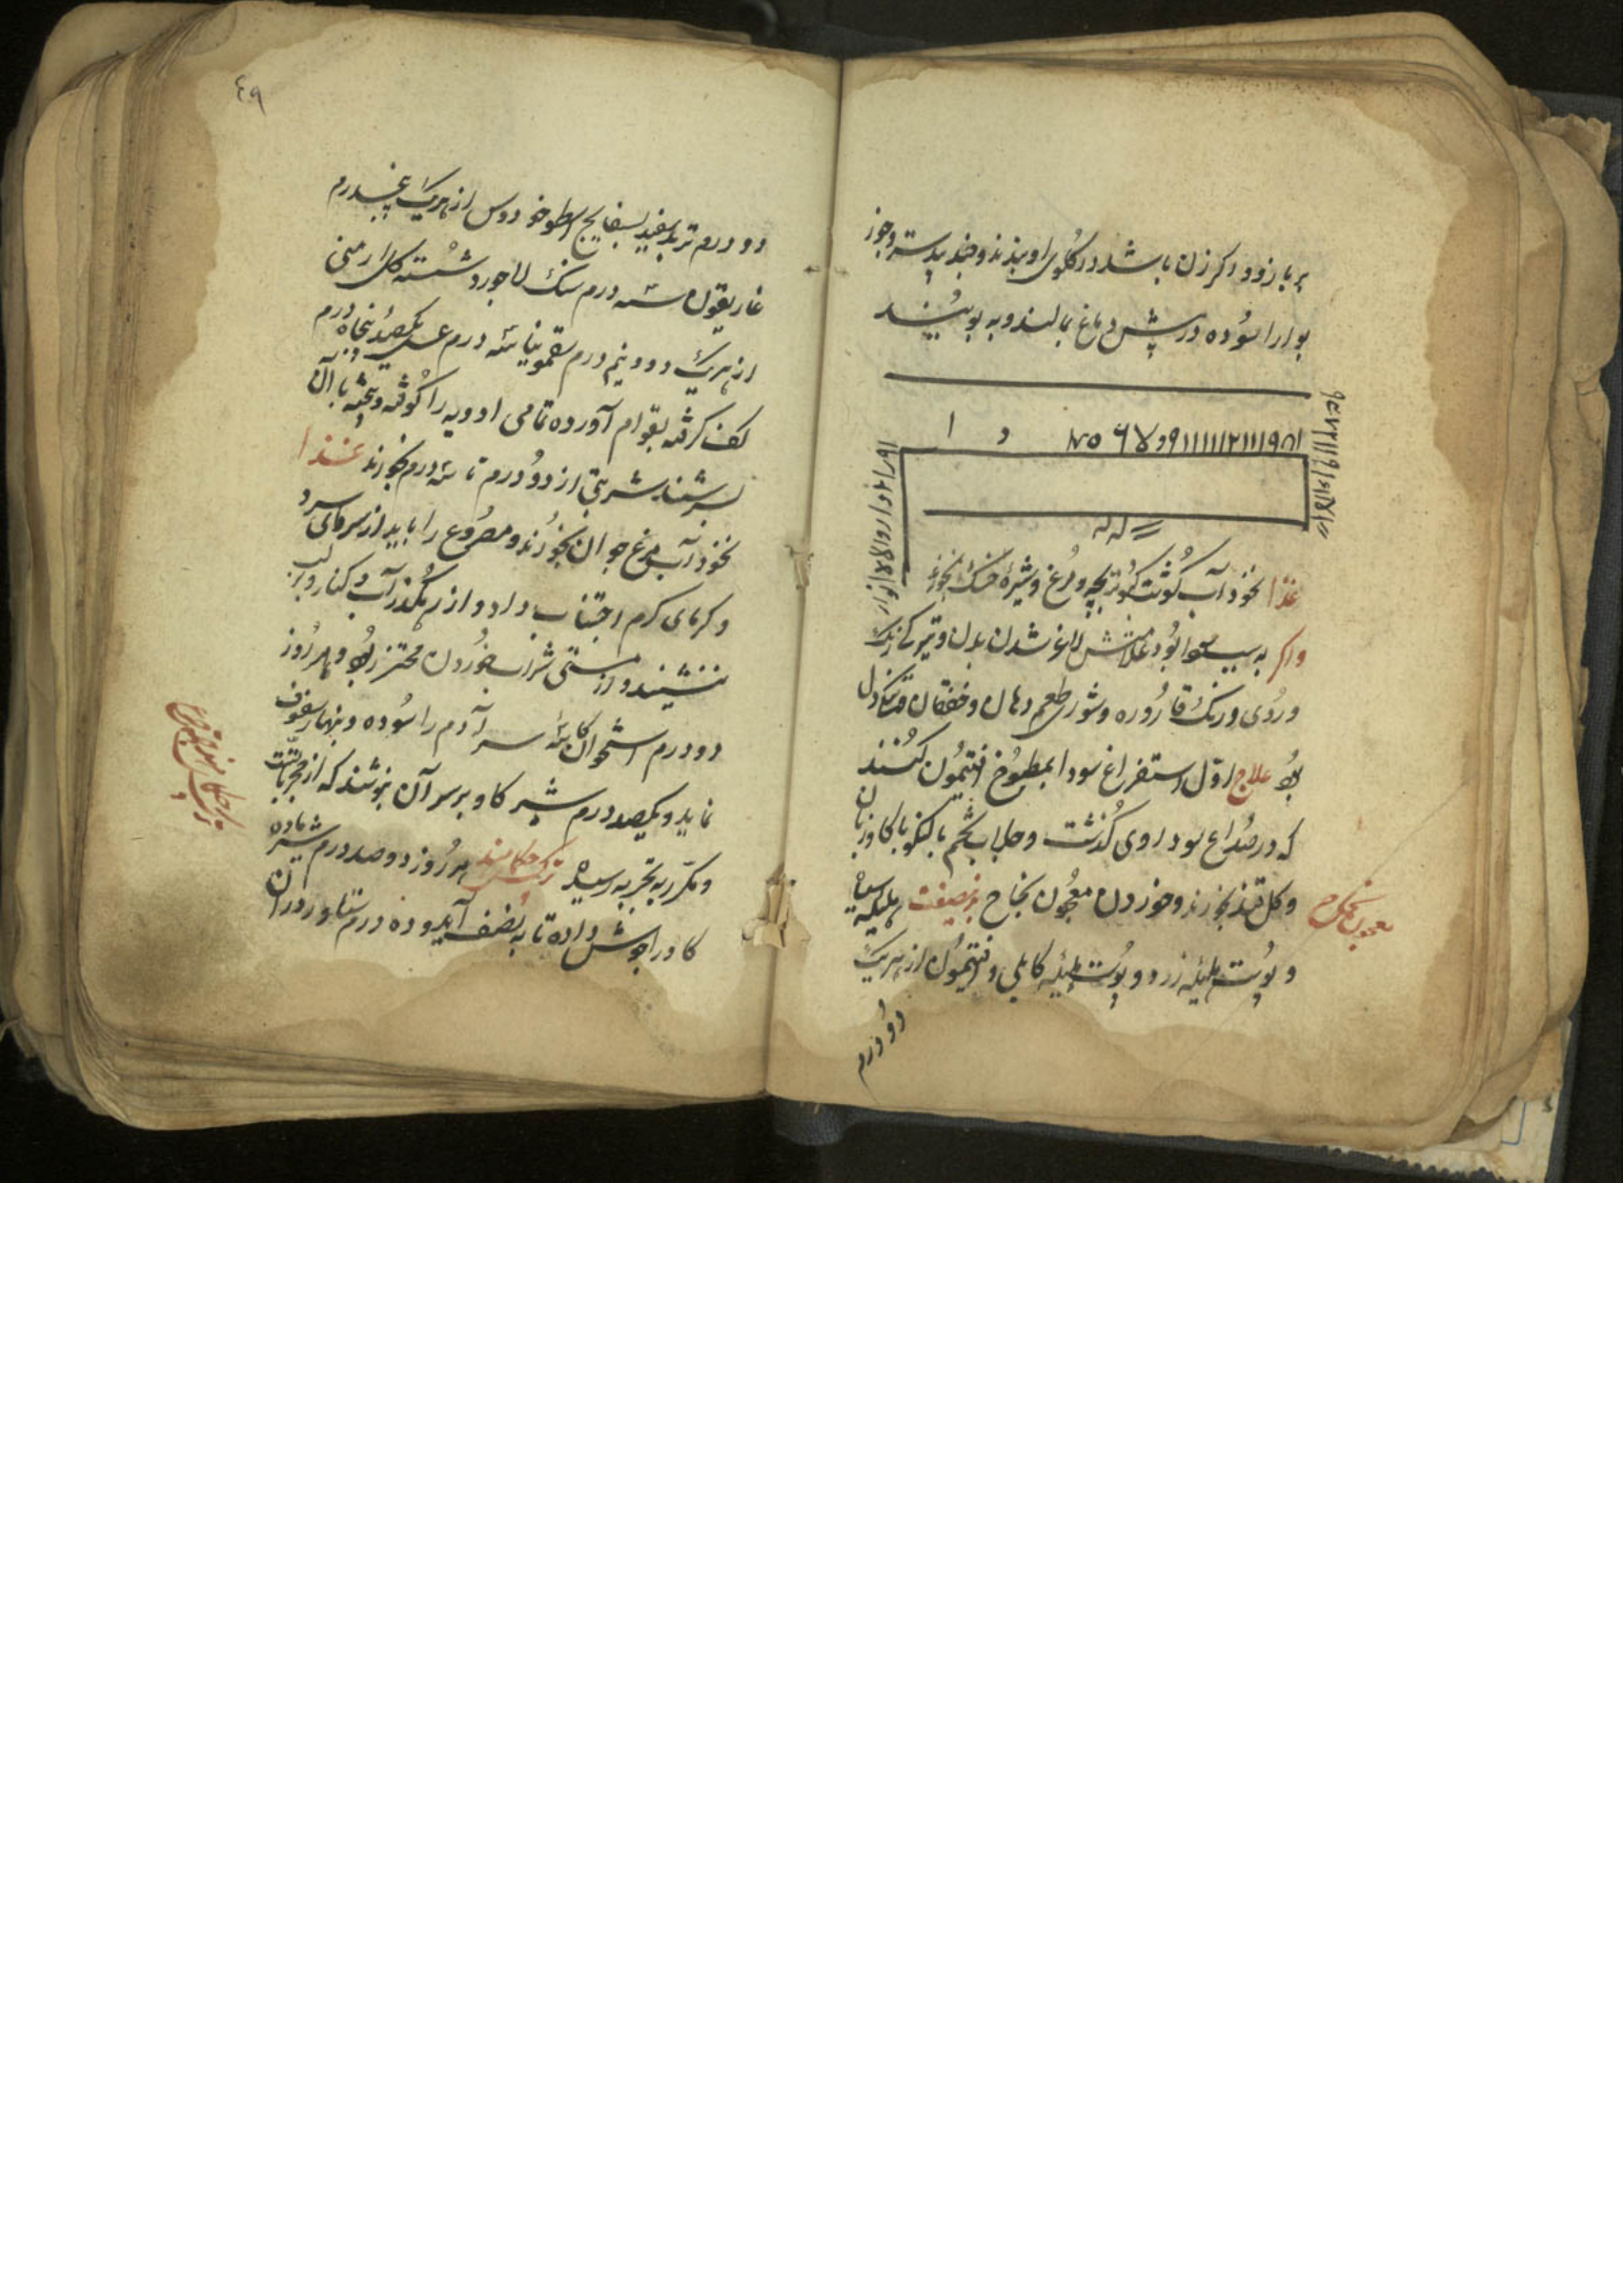 بر بازو و اگر زن باشد در گلوی او بندند و جند بیدستر و جوز
بوا را سوده در پیش دماغ بمالند و به بویند
غذا نخود آب گوشت کبوتر بچه و مرغ و شیرهٔ خسک بخورند
واگر به سبب سودا بود علامتش لاغر شدن بدن و تیرگی رنک
و روی و رنک قاروره و شوری طعم دهان و خفقان و تنکی دل
بود علاج اول استفراغ سودا بمطبوخ افتیمون کنند
که در صداع سوداوی گذشت و جلاب تخم بالنکو با کاوزبان
و کل قند بخورند و خوردن معجون نجاح بدینصفت هلیله سیاه
و پوست هلیله زرد و پوست هلیله کابلی و افتیمون از هریک
معجون نجاح
دو درم
٤٩
دو درم تربد سفید بسفایج اسطوخودوس از هریک پنجدرم
غاریقون سه درم سنک لاجورد شسته کل ارمنی
از هریک دو و نیم درم سقمونیا سه درم عسل یکصد و پنجاه درم
کف کرفته بقوام آورده تمامی ادویه را کوفته و بیخته با آن
بسرشند شربتی از دو درم تا سه درم بخورند غذا
نخود آب مرغ جوان بخورند و مصروع را باید از سرمای سرد
و کرمای کرم اجتناب دارد و از رهکذر آب و کنار و بر لب
ننشیند و در مستی شراب خوردن محترز بود و هر روز
دو درم استخوان کاسهٔ سر آدم را سوده و بنهار سفوف
نماید و یکصد درم شیر کاو بر سر آن بنوشند که از مجرباتست
و مکرر به تجربه رسیده ترکیب حکمای هند هر روز دو صد درم شیر ماده
کاو را جوش داده تا به نصف آید و ده درم ستاور در آن